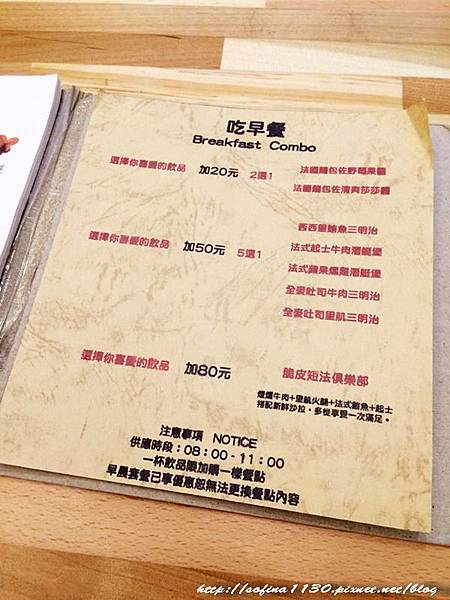 吃早餐
Breakfast Combo
選擇你喜愛的飲品 加20元 2選1 法國麵包佐野莓果醬
法國麵包佐清爽莎莎醬
西西里鮪魚三明治
法式起士牛肉潛艇堡
選擇你喜愛的飲品 加50元 5選1
法式蘋果燻雞潛艇堡
全麥吐司牛肉三明治
全麥吐司里肌三明治
選擇你喜愛的飲品 加80元 脆皮短法俱樂部
煙燻牛肉+里肌火腿+法式鮪魚+起士
搭配新鮮沙拉,多樣享受一次滿足。
注意事項 NOTICE
供應時段:08:00-11:00
一杯飲品限加購一樣餐點
早晨套餐已享優惠恕無法更換餐點內容
http://sofina1130.pixnet.net/blog